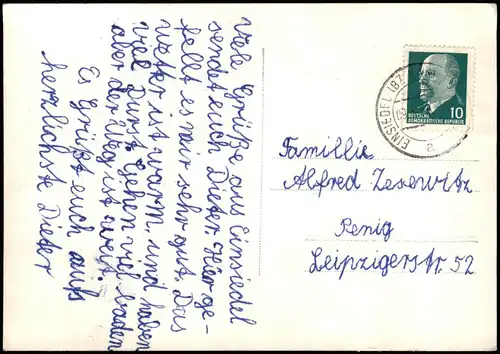 Viele Grüße aus Einsiedel
sendet euch Dieter. Hier ge-
fellt es mir sehr gut. Das
Wetter ist warm. und haben
viel Durst. Gehen viel baden
aber der Weg ist weit.
Es Grüßt euch aufs
herzlichste Dieter
EINSIEDEL
a
10
DEUTSCHE
DEMOKRATISCHE REPUBLIK
Famillie
Alfred Zesewitz
Penig
Leipzigerstr. 52